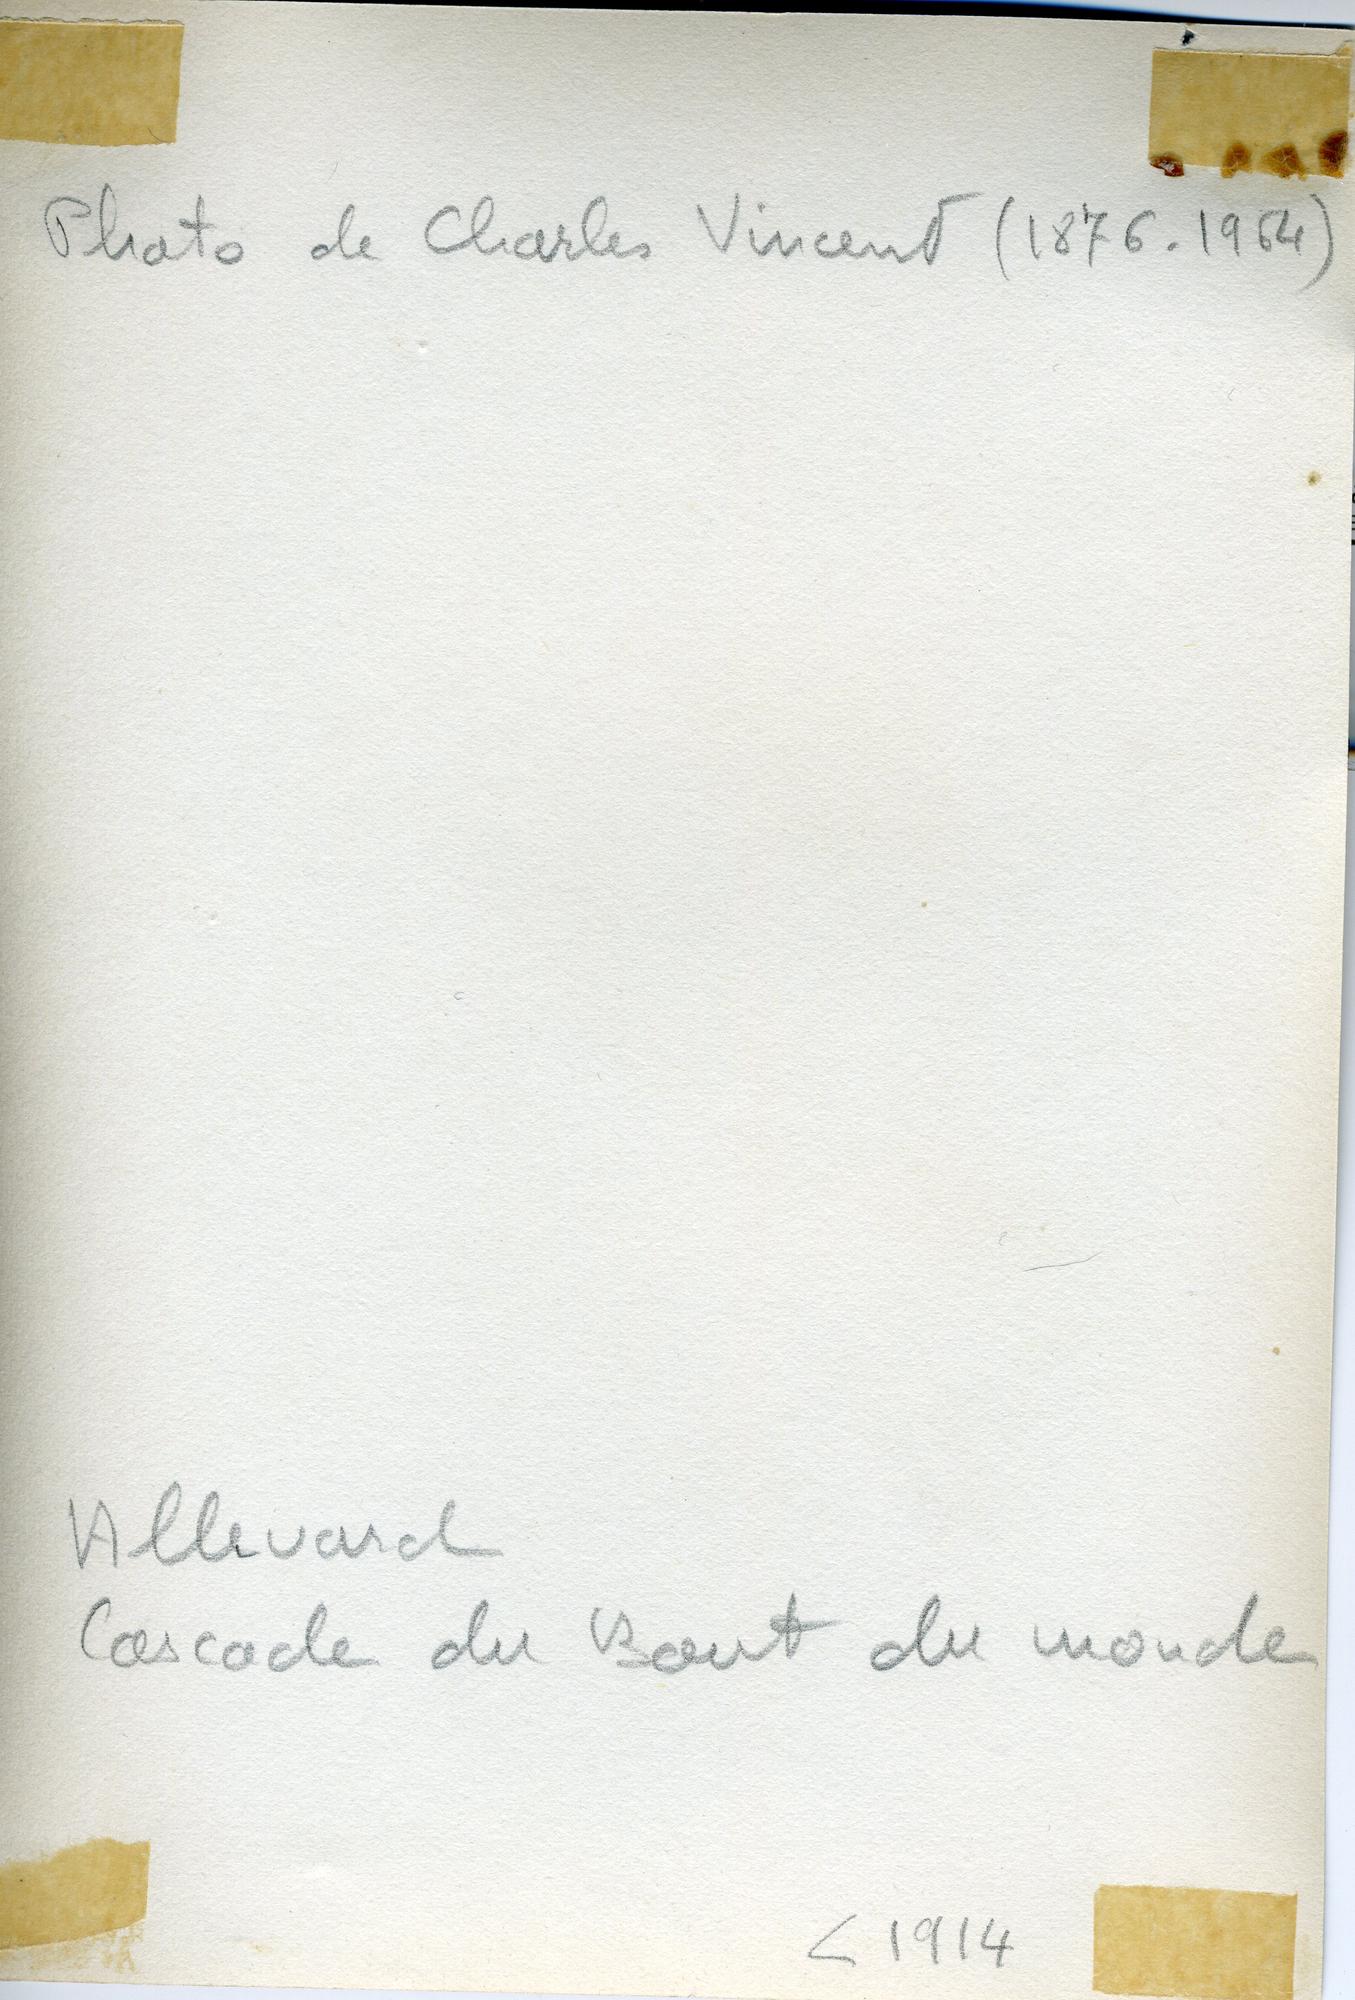 Photo de Charles Vincent (1876.1964)
Allevard
Cascade du Bout du monde
< 1914